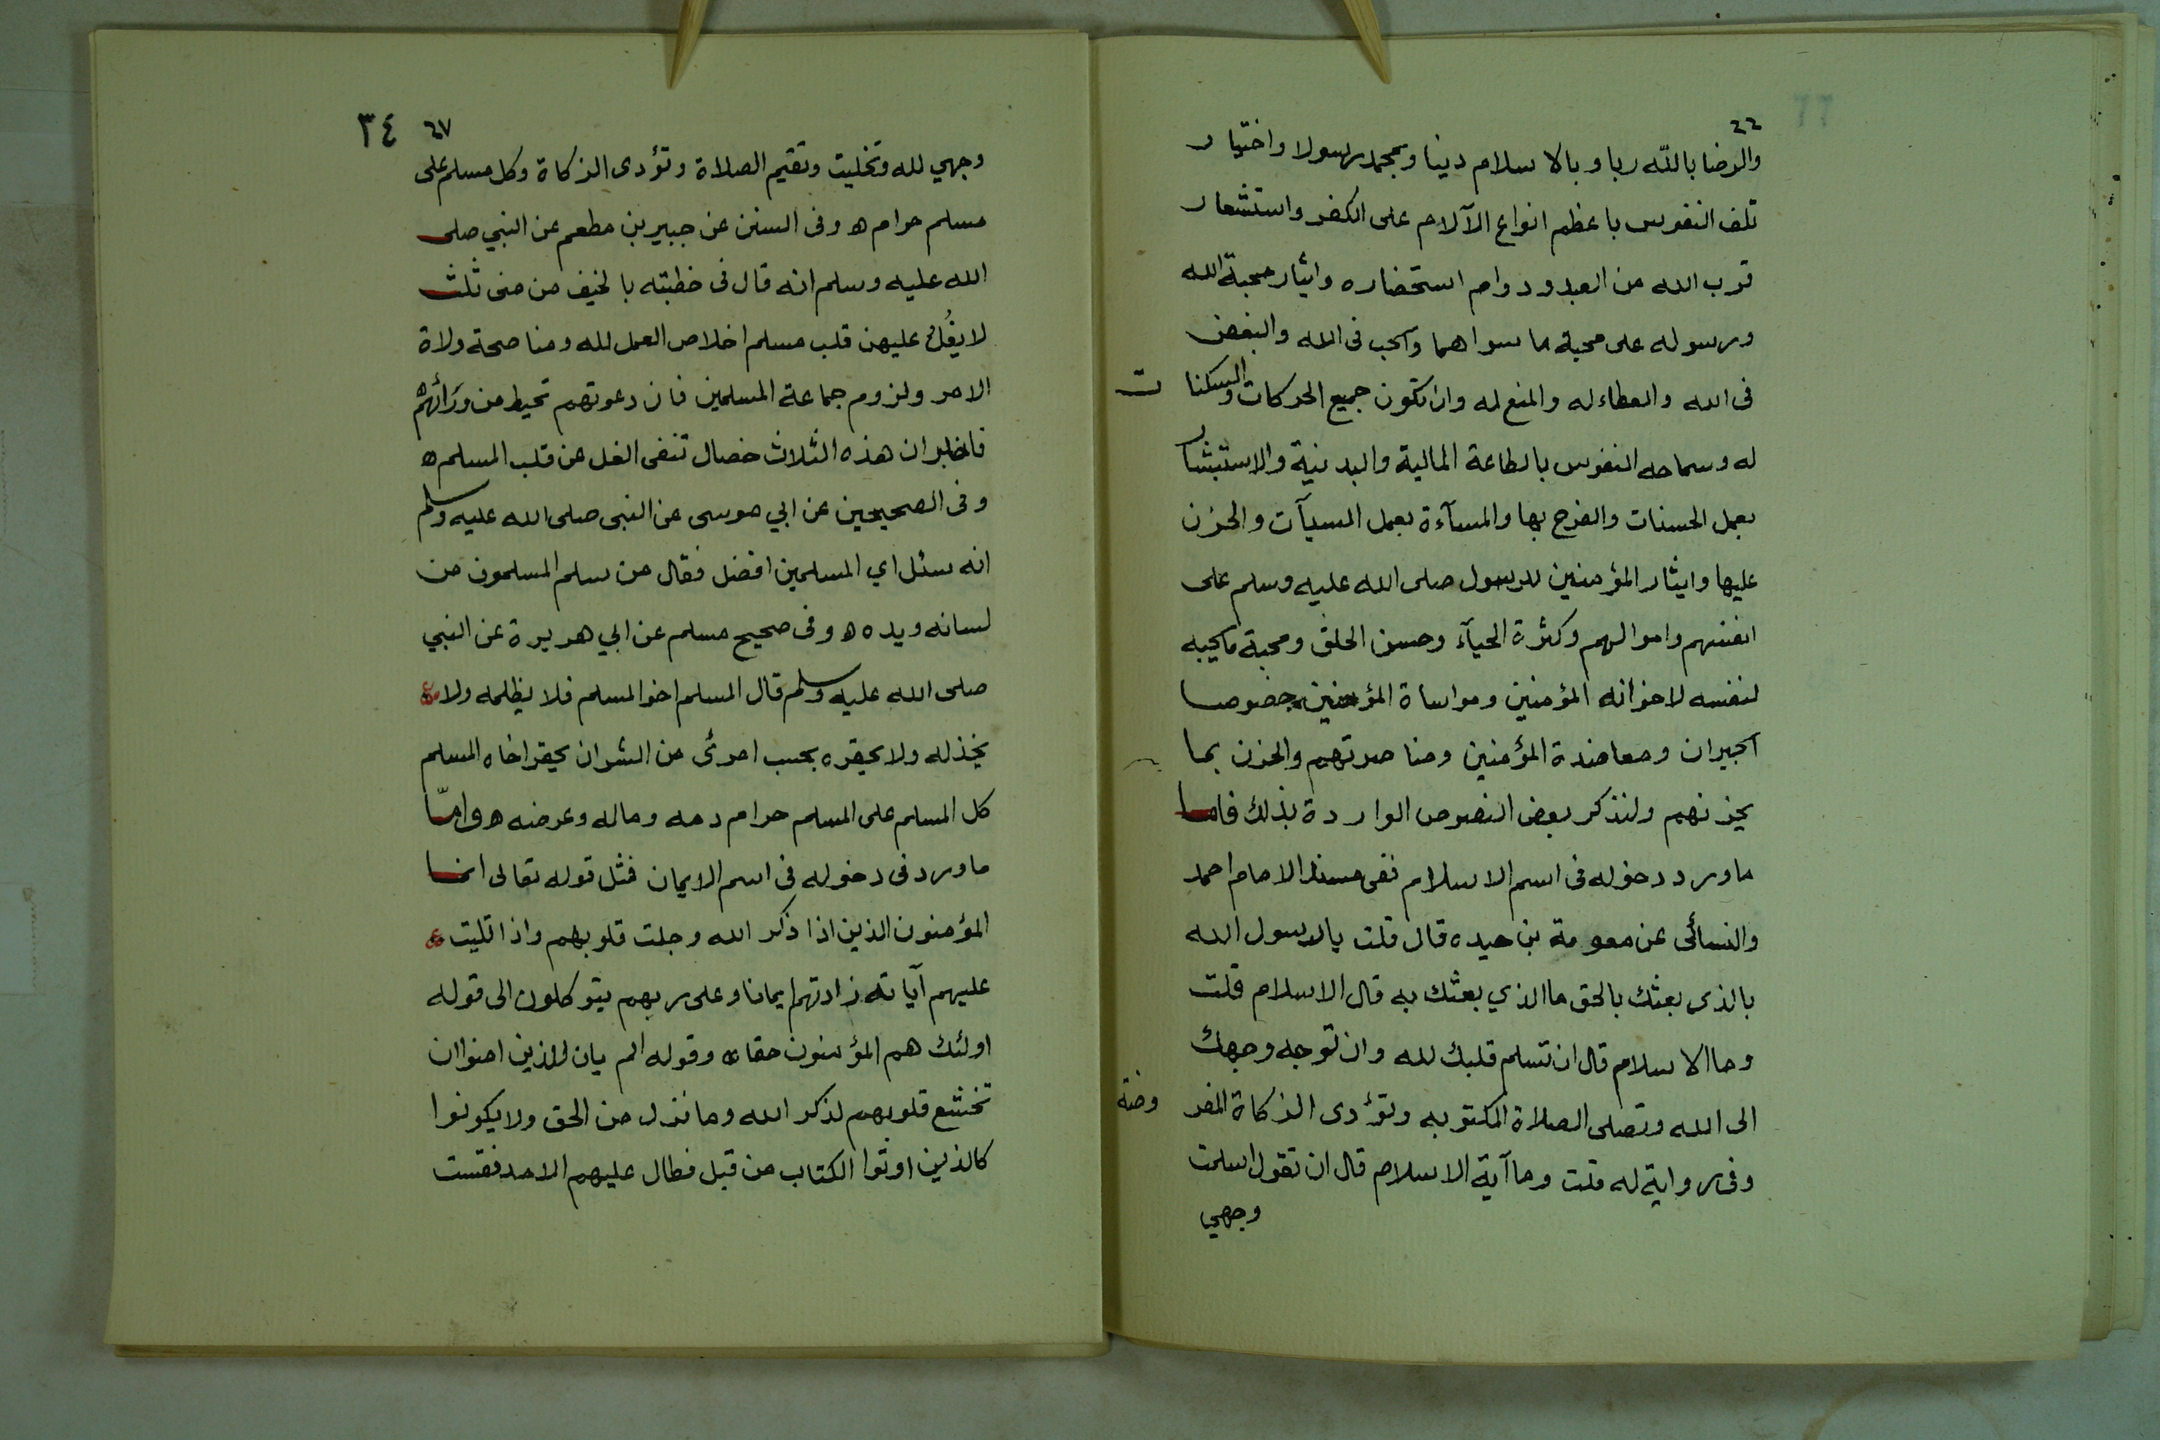 ٦٦
والرضا بالله ربا وبالاسلام دينا وبمحمد رسولا واختيار
تلف النفوس باعظم انواع الآلام على الكفر واستشعار
قرب الله من العبد ودوام استحضاره وايثار محبة الله
ورسوله على محبة ما سواهما والحب فى الله والبغض
فى الله والعطاء له والمنع له وان تكون جميع الحركات والسكنات
له وسماحه النفوس بالطاعة المالية والبدنية والاستبشار
بعمل الحسنات والفرح بها والمسآءة بعمل السيآت والحزن
عليها وايثار المؤمنين للرسول صلى الله عليه وسلم على
انفسهم واموالهم وكثرة الحيآء وحسن الخلق ومحبة مايحبه
لنفسه لاخوانه المؤمنين ومواساة المؤمنين خصوصا
الجيران ومعاضدة المؤمنين ومناصرتهم والحزن بما
يحزنهم ولنذكر بعض النصوص الواردة بذلك فاما
ماورد دخوله فى اسم الاسلام ففى مسند الامام احمد
والنسائى عن معوية بن حيده قال قلت يارسول الله
بالذى بعثك بالحق ماالذي بعثك به قال الاسلام قلت
وماالاسلام قال ان تسلم قلبك لله وان توجه وجهك
الى الله وتصلى الصلاة المكتوبه وتؤدى الزكاة المفروضة
وفى رواية له قلت وماآية الاسلام قال ان تقول اسلمت
وجهي
٦٧ ٣٤
وجهي لله وتخليت وتقيم الصلاة وتؤدى الزكاة وكل مسلم على
مسلم حرام ه وفى السنن عن جبير بن مطعم عن النبي صلى
الله عليه وسلم انه قال فى خطبته بالخيف من منى ثلث
لايغُل عليهن قلب مسلم اخلاص العمل لله ومناصحة ولاة
الامر ولزوم جماعة المسلمين فان دعوتهم تحيط من ورَائهم
فاخبر ان هذه الثلاث خصال تنفى الغل عن قلب المسلم ه
وفى الصحيحين عن ابي موسى عن النبى صلى الله عليه وسلم
انه سئل اي المسلمين افضل فقال من سلم المسلمون من
لسانه ويده ه وفى صحيح مسلم عن ابي هريرة عن النبي
صلى الله عليه وسلم قال المسلم اخوالمسلم فلا يظلمه ولا
يخذله ولايحقره بحسب امرئى من الشران يحقراخاه المسلم
كل المسلم على المسلم حرام دمه وماله وعرضه ه وامّا
ماورد فى دخوله فى اسم الايمان فمثل قوله تعالى انما
المؤمنون الذين اذا ذكر الله وجلت قلوبهم واذا تليت
عليهم آياته زادتهم ايمانا وعلى ربهم يتوكلون الى قوله
اولئك هم المؤمنون حقا ه وقوله الم يان للذين امنوا ان
تخشع قلوبهم لذكر الله ومانزل من الحق ولايكونوا
كالذين اوتوا الكتاب من قبل فطال عليهم الامد فقست